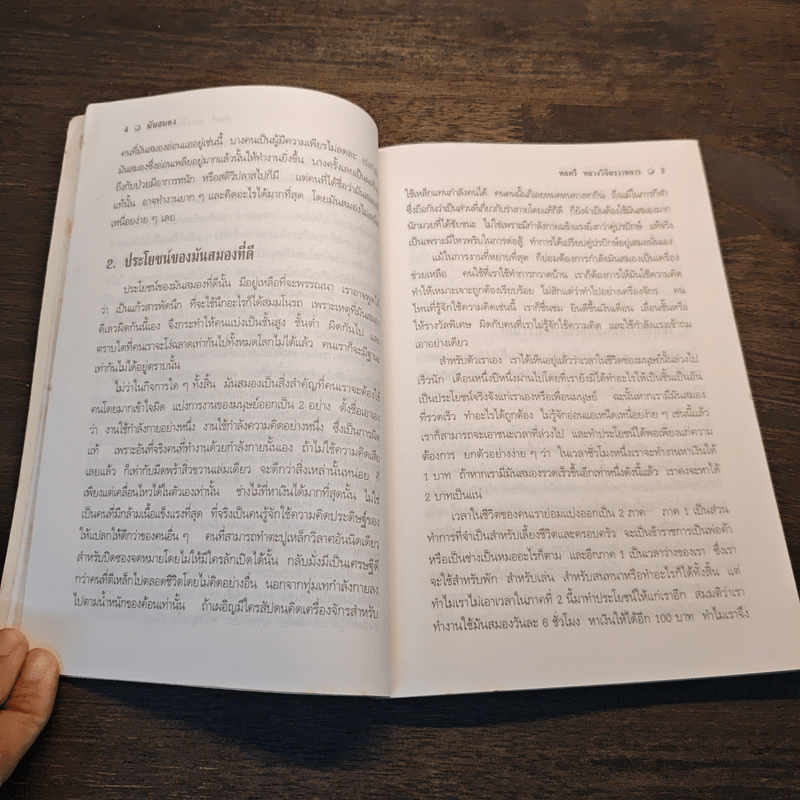 4 ❏ มันสมอง
คนที่มันสมองอ่อนแออยู่เช่นนี้ บางคนเป็นผู้มีความเพียรไม่ลดละ เร่งทำ
มันสมองซึ่งอ่อนเพลียอยู่มากแล้วนั้นให้ทำงานยิ่งขึ้น บางครั้งเลยเป็นผล
ถึงกับป่วยมีอาการหนัก หรือสติวิปลาสไปก็มี แต่คนที่ได้ชื่อว่ามันสมอง
แท้นั้น อาจทำงานยาก ๆ และคิดอะไรได้มากที่สุด โดยมันสมองไม่
เหนื่อยง่าย ๆ เลย
2. ประโยชน์ของมันสมองที่ดี
ประโยชน์ของมันสมองที่ดีนั้น มีอยู่เหลือที่จะพรรณนา เราอาจพูด
ว่า เป็นแก้วสารพัดนึก ที่จะใช้นึกอะไรก็ได้สมมโนรถ เพราะเหตุที่มันสมอง
ดีเลวผิดกันนี้เอง จึงกระทำให้คนแบ่งเป็นชั้นสูง ชั้นต่ำ ผิดกันไป และ
ตราบใดที่คนเราจะโง่ฉลาดเท่ากันไปทั้งหมดโลกไม่ได้แล้ว คนเราก็จะมีฐานะ
เท่ากันไม่ได้อยู่ตราบนั้น
ไม่ว่าในกิจการใด ๆ ทั้งสิ้น มันสมองเป็นสิ่งสำคัญที่คนเราจะต้องใช้
คนโดยมากเข้าใจผิด แบ่งการงานของมนุษย์ออกเป็น 2 อย่าง ตั้งชื่อเอาเอง
ว่า งานใช้กำลังกายอย่างหนึ่ง งานใช้กำลังความคิดอย่างหนึ่ง ซึ่งเป็นการผิด
แท้ เพราะอันที่จริงคนที่ทำงานด้วยกำลังกายนั้นเอง ถ้าไม่ใช้ความคิดเสีย
เลยแล้ว ก็เท่ากับมีดพร้าสิ่วขวานเล่มเดียว จะดีกว่าสิ่งเหล่านั้นหน่อย ก็
เพียงแต่เคลื่อนไหวได้ในตัวเองเท่านั้น ช่างไม้ที่หาเงินได้มากที่สุดนั้น ไม่ใช่
เป็นคนที่มีกล้ามเนื้อแข็งแรงที่สุด ที่จริงเป็นคนรู้จักใช้ความคิดประดิษฐ์ของ
ให้แปลกให้ดีกว่าของคนอื่น ๆ คนที่สามารถทำตะปูเหล็กวิลาศอันนิดเดียว
สำหรับปิดซองจดหมายโดยไม่ให้มีใครลักเปิดได้นั้น กลับมั่งมีเป็นเศรษฐีดี
กว่าคนที่ตีเหล็กไปตลอดชีวิตโดยไม่คิดอย่างอื่น นอกจากทุ่มเทกำลังกายลง
ไปตามน้ำหนักของค้อนเท่านั้น ถ้าเผอิญมีใครสัปดนคิดเครื่องจักรสำหรับ
พลตรี หลวงวิจิตรวาทการ ❏ 5
ใช้เหล็กแทนกำลังคนได้ คนคนนั้นก็เลยหมดหนทางหากิน ถึงแม้ในการกีฬา
ซึ่งถือกันว่าเป็นส่วนที่เกี่ยวกับร่างกายโดยแท้ก็ดี ก็ยังจำเป็นต้องใช้มันสมองมาก
นักมวยที่ได้ชัยชนะ ไม่ใช่เพราะมีกำลังกายแข็งแรงยิ่งกว่าคู่ปรปักษ์ แท้จริง
เป็นเพราะมีไหวพริบในการต่อสู้ ทำการได้เปรียบคู่ปรปักษ์อยู่เสมอนั่นเอง
แม้ในการงานที่หยาบที่สุด ก็ย่อมต้องการกำลังมันสมองเป็นเครื่อง
ช่วยเหลือ คนใช้ที่เราใช้ทำการกวาดบ้าน เราก็ต้องการให้มันใช้ความคิด
ทำให้เหมาะเจาะถูกต้องเรียบร้อย ไม่สักแต่ว่าทำไปอย่างเครื่องจักร คน
ไหนที่รู้จักใช้ความคิดเช่นนี้ เราก็ชื่นชม ยินดีขึ้นเงินเดือน เลื่อนชั้นหรือ
ให้รางวัลพิเศษ ผิดกับคนที่เราไม่รู้จักใช้ความคิด และใช้กำลังแรงเข้าถม
เอาอย่างเดียว
สำหรับตัวเราเอง เราได้เห็นอยู่แล้วว่าเวลาในชีวิตของมนุษย์นั้นล่วงไป
เร็วนัก เดือนหนึ่งปีหนึ่งผ่านไปโดยที่เรายังมิได้ทำอะไรให้เป็นชิ้นเป็นอัน
เป็นประโยชน์จริงจังแก่เราเองหรือเพื่อนมนุษย์ ฉะนั้นหากเรามีมันสมอง
ที่รวดเร็ว ทำอะไรได้ถูกต้อง ไม่รู้จักอ่อนแอเหน็ดเหนื่อยง่าย ๆ เช่นนี้แล้ว
เราก็สามารถจะเอาชนะเวลาที่ล่วงไป และทำประโยชน์ได้พอเพียงแก่ความ
ต้องการ ยกตัวอย่างง่าย ๆ ว่า ในเวลาชั่วโมงหนึ่งเราจะทำงานหาเงินได้
1 บาท ถ้าหากเรามีมันสมองรวดเร็วขึ้นอีกเท่าหนึ่งดังนี้แล้ว เราคงจะหาได้
2 บาทเป็นแน่
เวลาในชีวิตของคนเราย่อมแบ่งออกเป็น 2 ภาค ภาค 1 เป็นส่วน
ทำการที่จำเป็นสำหรับเลี้ยงชีวิตและครอบครัว จะเป็นข้าราชการเป็นพ่อค้า
หรือเป็นช่างเป็นหมออะไรก็ตาม และอีกภาค 1 เป็นเวลาว่างของเรา ซึ่งเรา
จะใช้สำหรับพัก สำหรับเล่น สำหรับสนทนาหรือทำอะไรก็ได้ทั้งสิ้น แต่
ทำไมเราไม่เอาเวลาในภาคที่ 2 นี้มาทำประโยชน์ให้แก่เราอีก สมมติว่าเรา
ทำงานใช้มันสมองวันละ 6 ชั่วโมง หาเงินให้ได้อีก 100 บาท ทำไมเราจึง